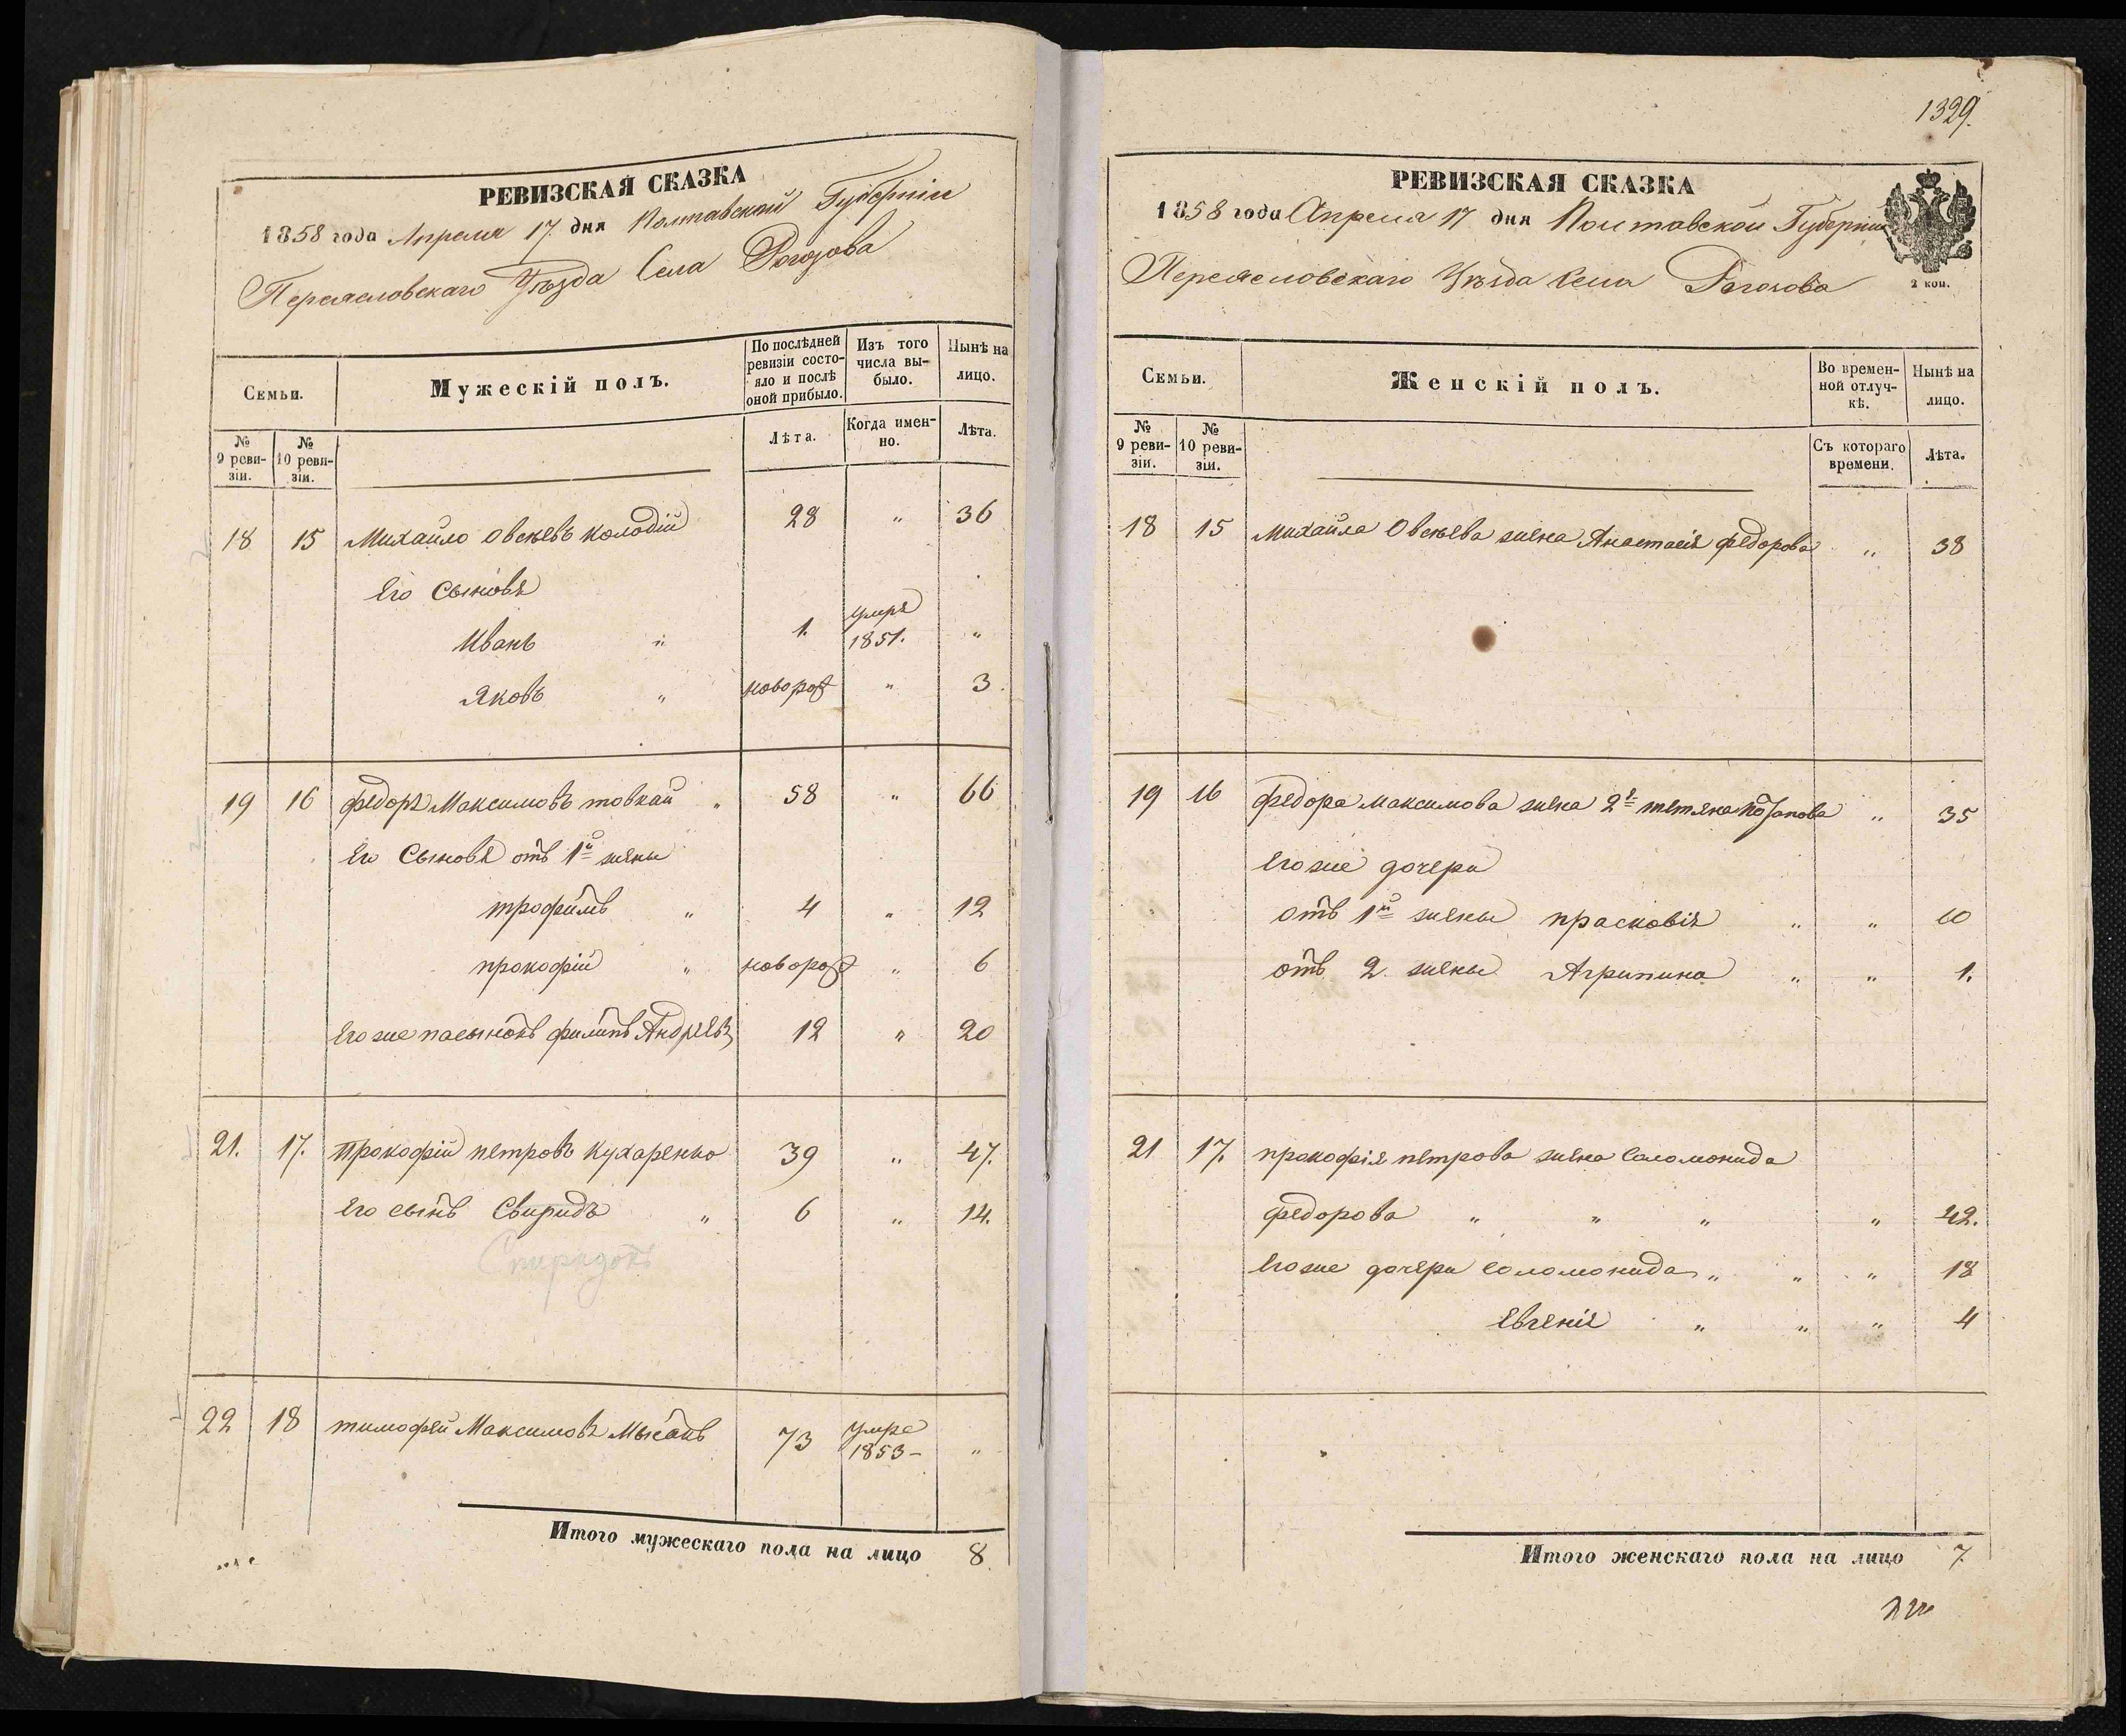 РЕВИЗСКАЯ СКАЗКА
1858 года Апреля 17 дня Полтавской Губерніи
Переяславскаго Уѣзда Села Рогозова
Семьи.
Мужескій полъ.
По послѣдней ревизіи состояло и послѣ оной прибыло.
Изъ того числа выбыло.
Нынѣ на лицо.
№ 9 ревизіи.
№ 10 ревизіи.
Лѣта.
Когда именно.
Лѣта.
18 15 Михайло Овсѣевъ Колодій 28 " 36
Его Сыновя
Иванъ " 1. умре 1851. "
Яковъ " новорож " 3.
19 16 федоръ Максимовъ товкай " 58 " 66
Его Сыновя отъ 1й жены
трофимъ " 4 " 12
прокофій " новорож " 6
Его же пасынокъ филипъ Андреевъ 12 " 20
21. 17. Прокофій петровъ Кухаренко 39 " 47.
Его сынъ Свиридъ " 6 " 14.
Спиридонъ
22 18 тимофей Максимовъ 73 умре 1853 – "
Итого мужескаго пола на лицо 8.
1329.
РЕВИЗСКАЯ СКАЗКА
1858 года Апреля 17 дня Полтавской Губерніи
Переясловскаго Уѣзда Села Рогозова
2 коп.
Семьи.
Женскій полъ.
Во временной отлучкѣ.
Нынѣ на лицо.
№ 9 ревизіи.
№ 10 ревизіи.
Съ котораго времени.
Лѣта.
18 15 Михайла Овсѣева жена Анастасія федорова " 38
19 16 федора Максимова жена 2я тетяна Потапова " 35
Его же дочери
отъ 1й жены прасковія " " 10
отъ 2. жены Агрипина " " 1.
21 17. прокофія петрова жена Соломонида
федорова " " " " 42.
Его же дочери Соломонида " " " 18
Евгенія " " " 4
Итого женскаго пола на лицо 7.